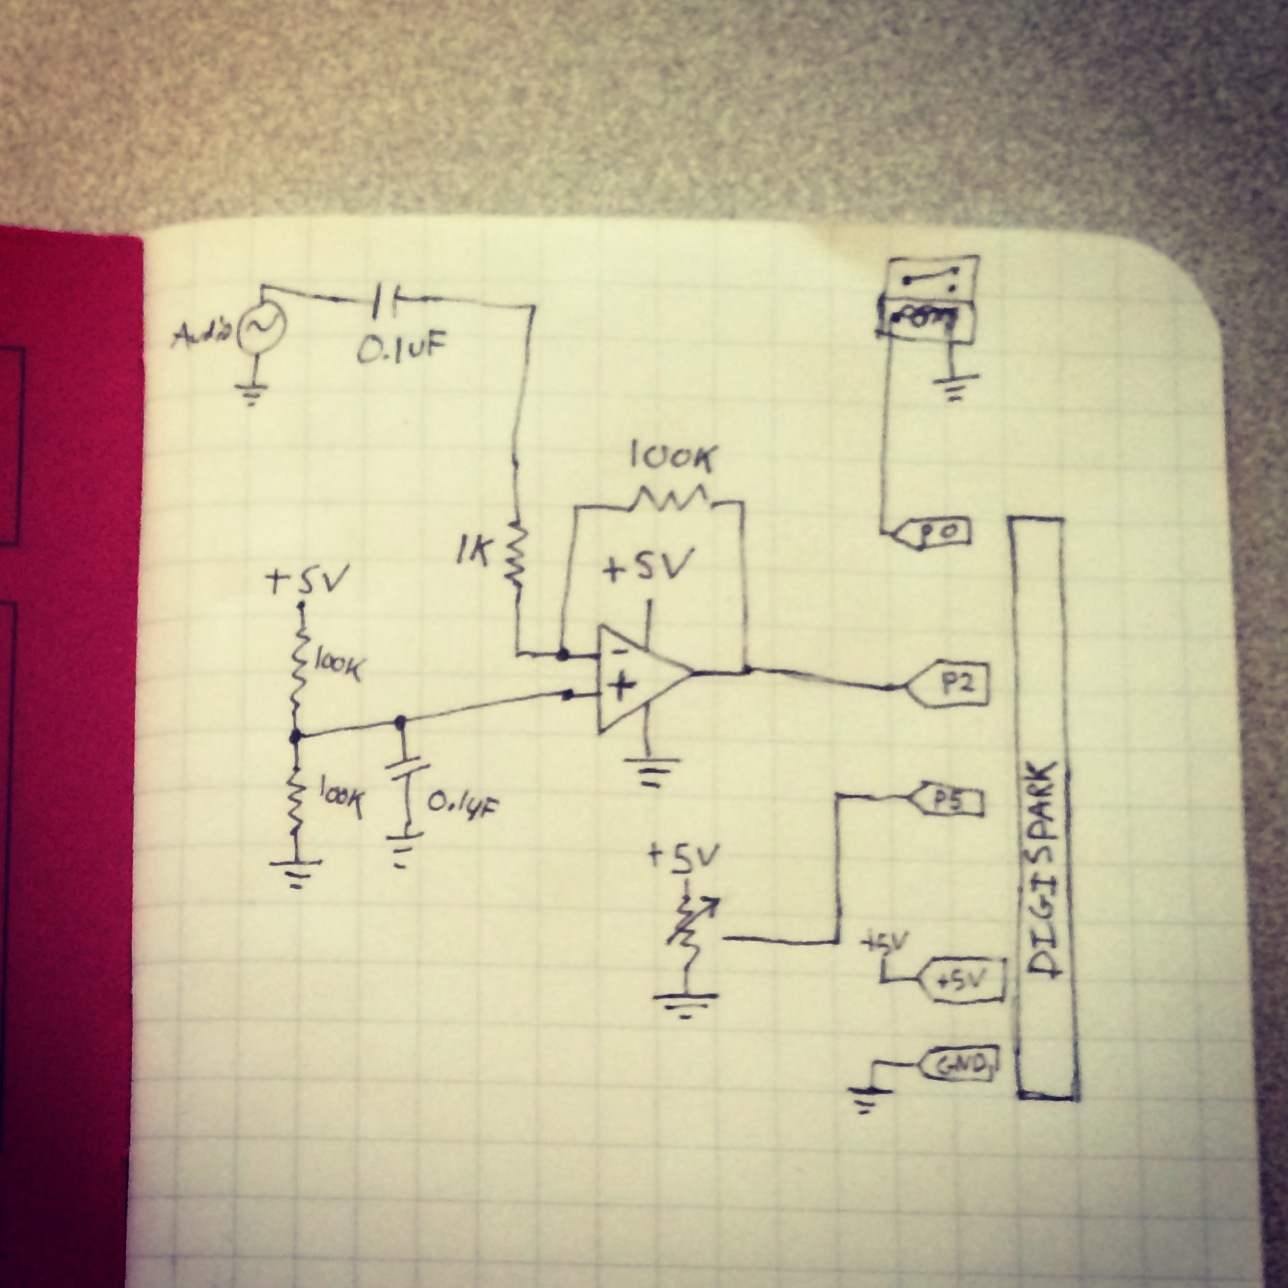 Audio
0.1uF
100K
1K
+5V
+5V
100K
-
+
100K
0.1uF
P0
P2
P5
+5V
+5V
+5V
GND
DIGISPARK